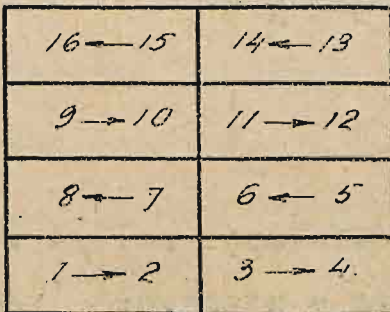 16 ← 15 14 ← 13
9 → 10 11 → 12
8 ← 7 6 ← 5
1 → 2 3 → 4